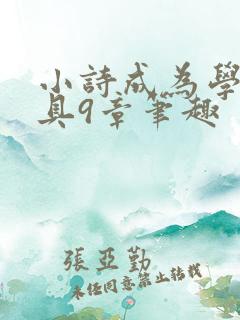 小詩成為學
具9章筆趣
張亞勤
未任同意禁止转载